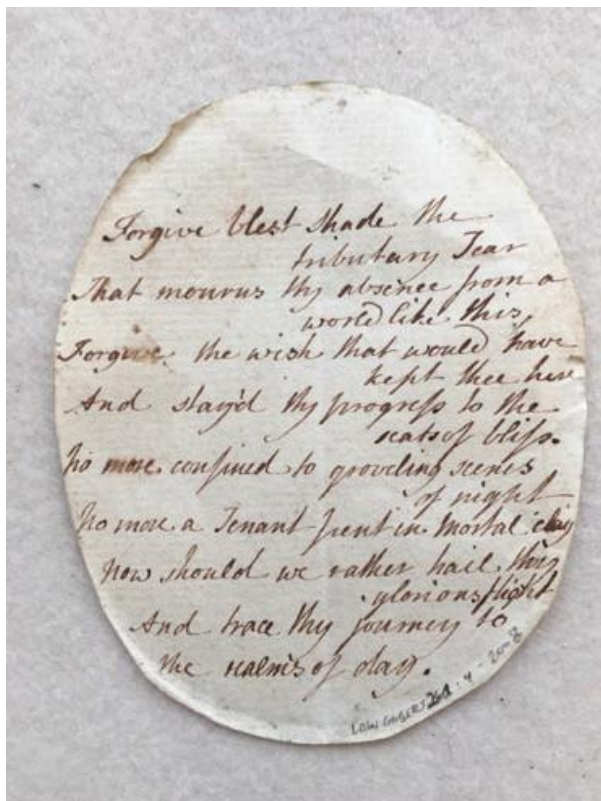 Forgive blest shade the
tributary Tear
That mourns thy absence from a
world like this,
Forgive the wish that would have
kept thee here
And stay'd thy progress to the
seats of bliss.
No more confined to groveling scenes
of night
No more a Tenant pent in Mortal clay
Now should we rather hail thy
glorious flight
And trace thy journey to
the realms of day.
4-2008